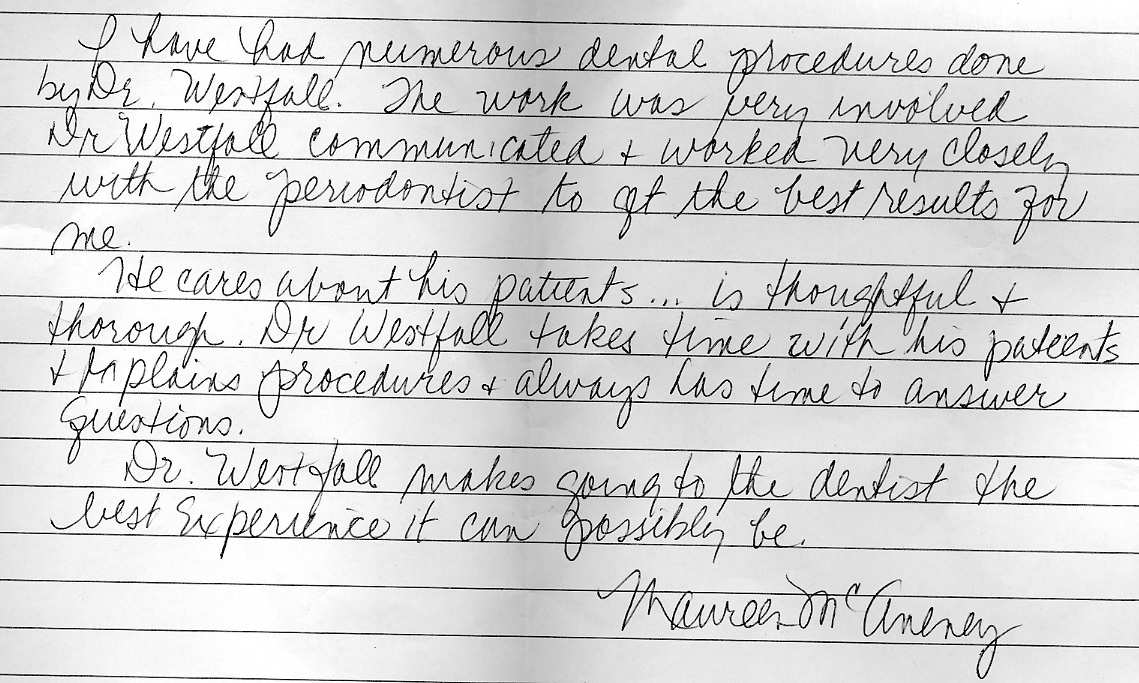 I have had numerous dental procedures done
by Dr. Westfall. The work was very involved
Dr Westfall communicated + worked very closely
with the periodontist to gt the best results for
me.
He cares about his patients... is thoughtful +
thorough. Dr Westfall takes time with his patients
+ explains procedures + always has time to answer
questions.
Dr. Westfall makes going to the dentist the
best experience it can possibly be.
Maureen McAneney